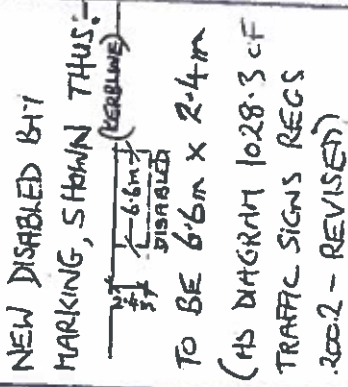 NEW DISABLED BAY
MARKING, SHOWN THUS:-
(KERBLINE)
6.6m
DISABLED
TO BE 6.6m x 2.4m
(AS DIAGRAM 1028.3 OF
TRAFFIC SIGNS REGS
2002 - REVISED)